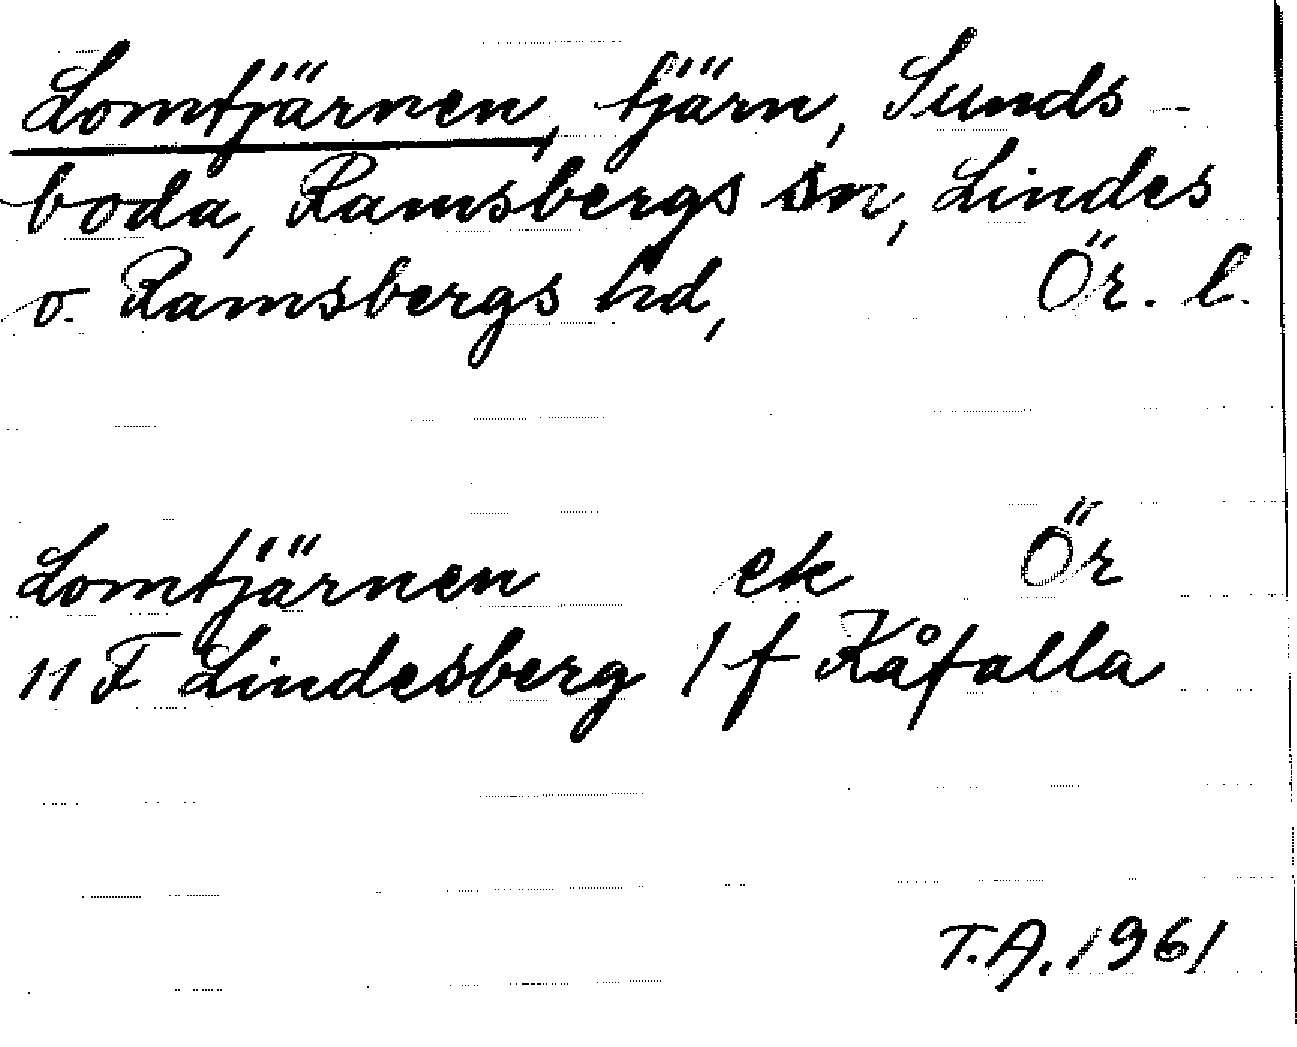 Lomtjärnen, tjärn, Sunds-
boda, Ramsbergs sn, Lindes
o. Ramsbergs hd, Ör. l.
Lomtjärnen ek Ör
11 F Lindesberg 1 f Kåfalla
T.A. 1961